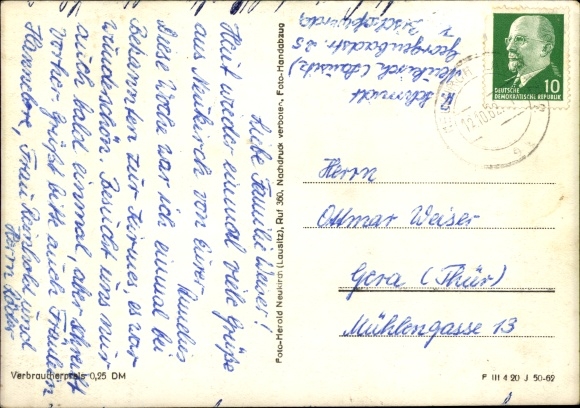 Liebe Familie Weiser!
Heut wieder einmal viele Grüße
aus Neukirch von Eurer Claudia
Diese Woche war ich einmal bei
Bekannten zur Kirmes, es war
wunderschön. Besucht uns nur
auch bald einmal, aber schreibt
vorher. Grüßt bitte auch Fräulein
Hannelore, Frau Reinhold und
Herrn
Schmidt
Neukirch (Lausitz)
Georgenbadstr. 25
Bischofswerda
DEUTSCHE
DEMOKRATISCHE REPUBLIK
10
12.10.62
Foto-Herold Neukirch (Lausitz), Ruf 360, Nachdruck verboten, Foto-Handabzug
Herrn
Ottmar Weiser
Gera (Thür)
Mühlengasse 13
Verbraucherpreis 0,25 DM
P III 4 20 J 50-62